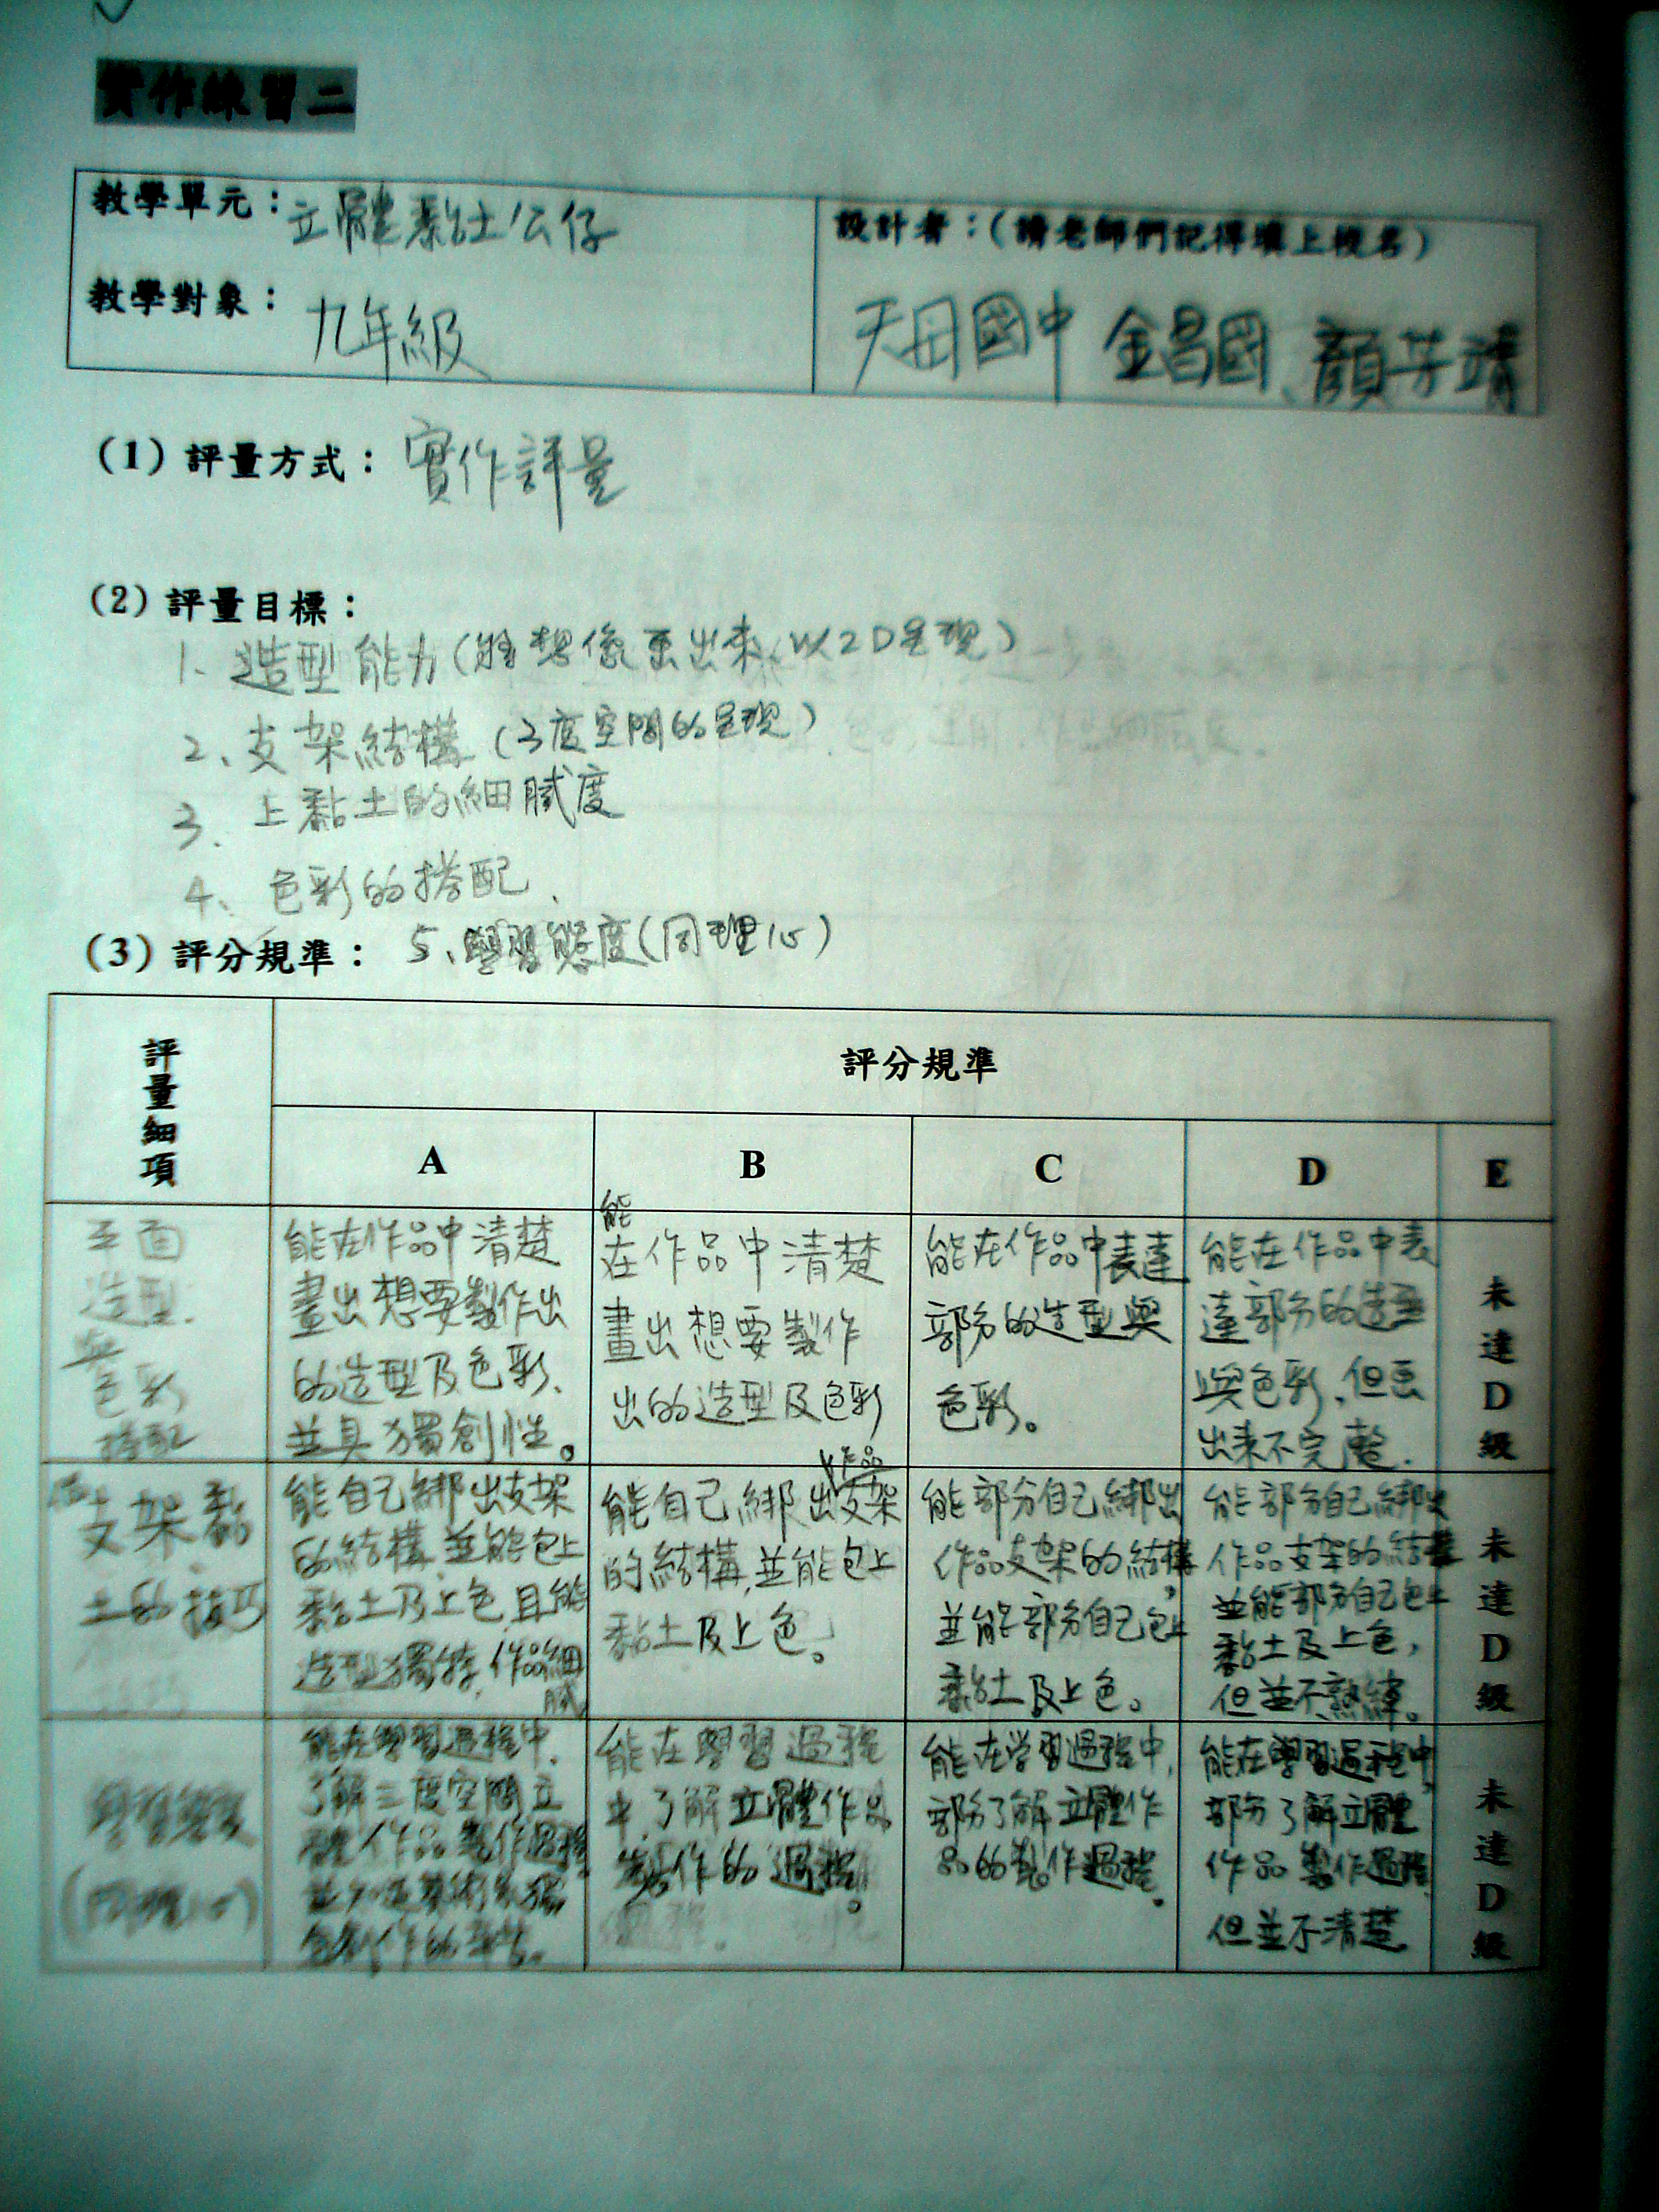 實作練習二
教學單元：立體黏土公仔
教學對象：九年級
設計者：（請老師們記得填上校名）
天母國中 金昌國、顏芳靖
（1）評量方式：實作評量
（2）評量目標：
1、造型能力（將想像畫出來，以2D呈現）
2、支架結構（3度空間的呈現）
3、上黏土的細膩度
4、色彩的搭配、
5、學習態度（同理心）
（3）評分規準：
評量細項
評分規準
A
B
C
D
E
平面
造型
與
色彩
搭配
能在作品中清楚
畫出想要製作出
的造型及色彩、
並具獨創性。
能
在作品中清楚
畫出想要製作
出的造型及色彩
能在作品中表達
部分的造型與
色彩。
能在作品中表
達部分的造型
與色彩，但畫
出來不完整.
未達D級
支架黏
土的技巧
能自己綁出支架
的結構，並能包上
黏土及上色，且能
造型獨特，作品細
膩
作品
能自己綁出支架
的結構，並能包上
黏土及上色。
能部分自己綁出
作品支架的結構，
並能部分自己包上
黏土及上色。
能部分自己綁出
作品支架的結構
並能部分自己包上
黏土及上色，
但並不熟練。
未達D級
學習態度
（同理心）
能在學習過程中，
了解三度空間立
體作品製作過程
能在學習過程
中，了解立體作品
製作的過程。
能在学習過程中，
部分了解立體作
品的製作過程。
能在學習過程中，
部分了解立體
作品製作過程
但並不清楚
未達D級